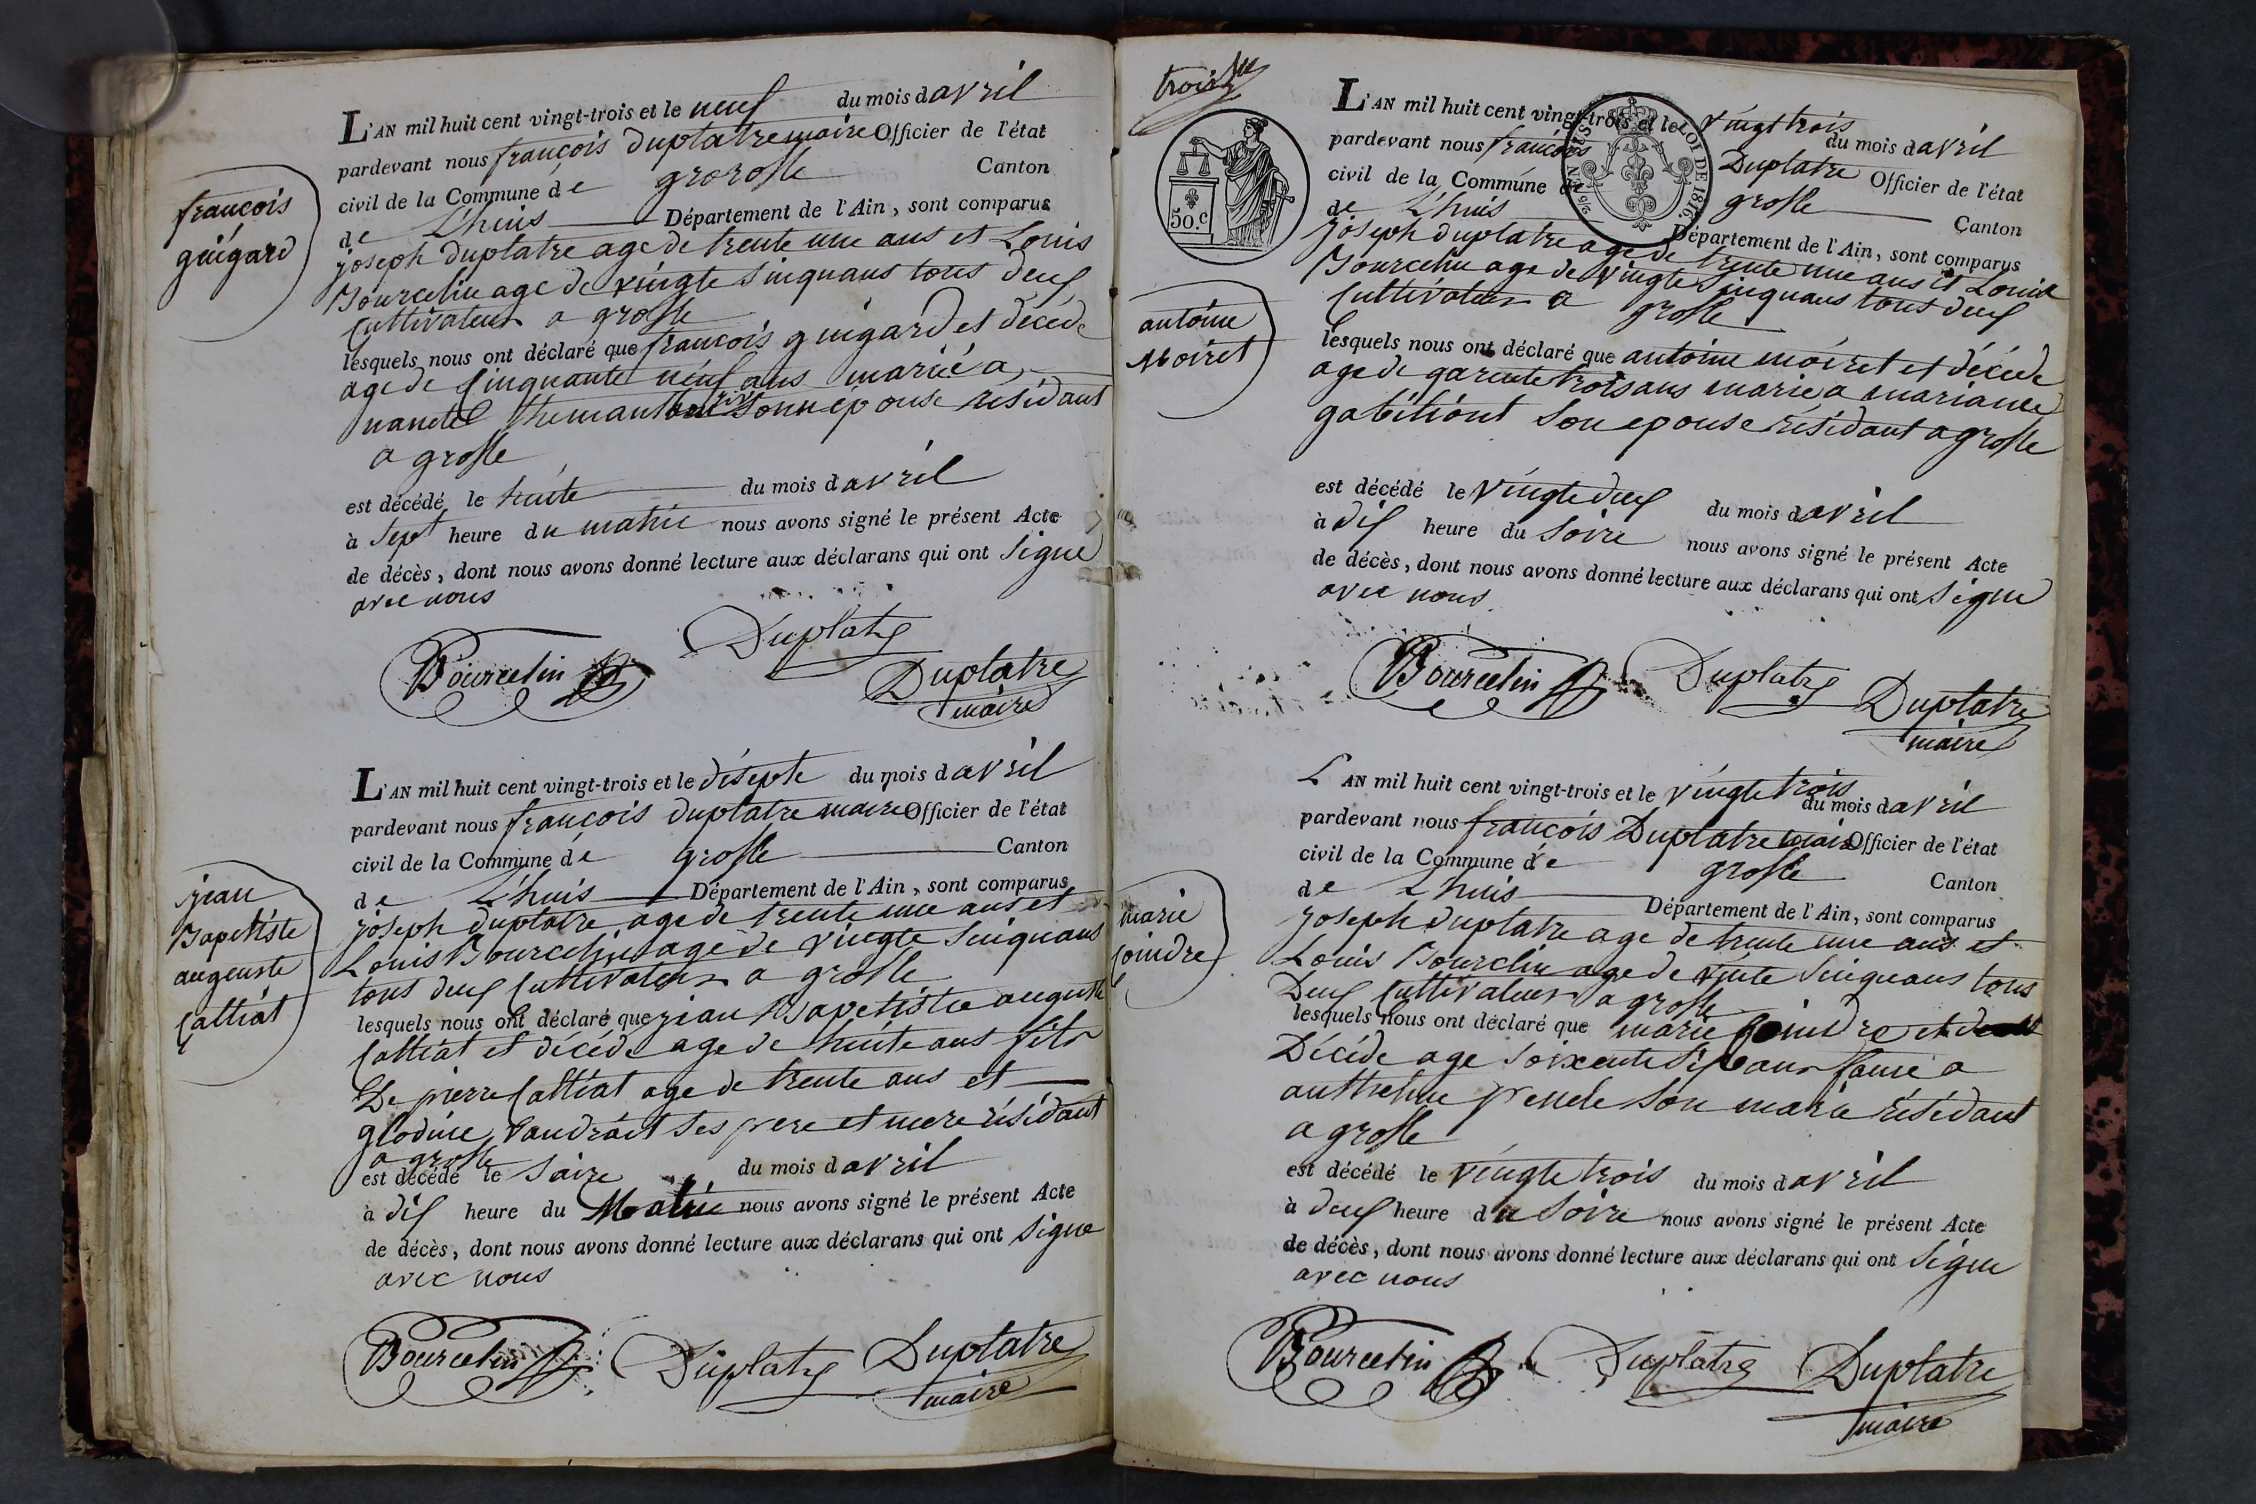 françois
guigard
L'AN mil huit cent vingt-trois et le neuf du mois d avril
pardevant nous françois Duplatre maire Officier de l'état
civil de la Commune de grorosle Canton
de L'huis Département de l'Ain, sont comparus
joseph duplatre age de trente une ans et Louis
Bourcelin age de vingte sinquans tous deux
Cultivateur a grosle
lesquels nous ont déclaré que françois guigard et décéde
age de Cinquante neuf ans marié a
sonn épouse résidant
a grosle
est décédé le huite du mois d avril
à sept heure du matin nous avons signé le présent Acte
de décès, dont nous avons donné lecture aux déclarans qui ont signe
avec nous
Bourcelin Duplatre
Duplatre
maire
jean
Bapetiste
auguste
Calliat
L'AN mil huit cent vingt-trois et le disepte du mois d avril
pardevant nous françois duplatre maire Officier de l'état
civil de la Commune de grosle Canton
de L'huis Département de l'Ain, sont comparus
joseph duplatre age de trente une ans et
Louis Bourcelin age de vingte sinquans
tous deux Cultivateur a grosle
lesquels nous ont déclaré que jean Bapetistie auguste
Calliat et décéde age de huite ans fils
De pierre Calliat age de trente ans et
glodine Vaudrait ses pere et mere résidant
a grosle
est décédé le saize du mois d avril
à dix heure du Matin nous avons signé le présent Acte
de décès, dont nous avons donné lecture aux déclarans qui ont signe
avec nous
Bourcelin Duplatre Duplatre
maire
trois
50.c
LOI DE 1816.
antoine
Moiret
L'AN mil huit cent vingt-trois et le vingt trois du mois d avril
pardevant nous françois Duplatre Officier de l'état
civil de la Commune de grosle Canton
de L'huis Département de l'Ain, sont comparus
joseph duplatre age de trente une ans et Louis
Bourcelin age de vingte sinquans tous deux
Cultivateur a grosle
lesquels nous ont déclaré que antoine moiret et décéde
age de garente trois ans marie a marianne
gabitiont son epouse résidant a grosle
est décédé le vingte deux du mois d avril
à dix heure du soire nous avons signé le présent Acte
de décès, dont nous avons donné lecture aux déclarans qui ont signe
avec nous
Bourcelin Duplatre Duplatre
maire
marie
Coindre
L'AN mil huit cent vingt-trois et le vingte trois du mois d avril
pardevant nous françois Duplatre maire Officier de l'état
civil de la Commune de grosle Canton
de L'huis Département de l'Ain, sont comparus
joseph duplatre age de trente une ans et
Louis Bourclin age de vinte sinquans tous
Deux Cultivateur a grosle
lesquels nous ont déclaré que marie Coindre et
Décéde age soixente dix ans fame a
son marie résidant
a grosle
est décédé le vingte trois du mois d avril
à deux heure du soire nous avons signé le présent Acte
de décès, dont nous avons donné lecture aux déclarans qui ont signe
avec nous
Bourcelin Duplatre Duplatre
maire